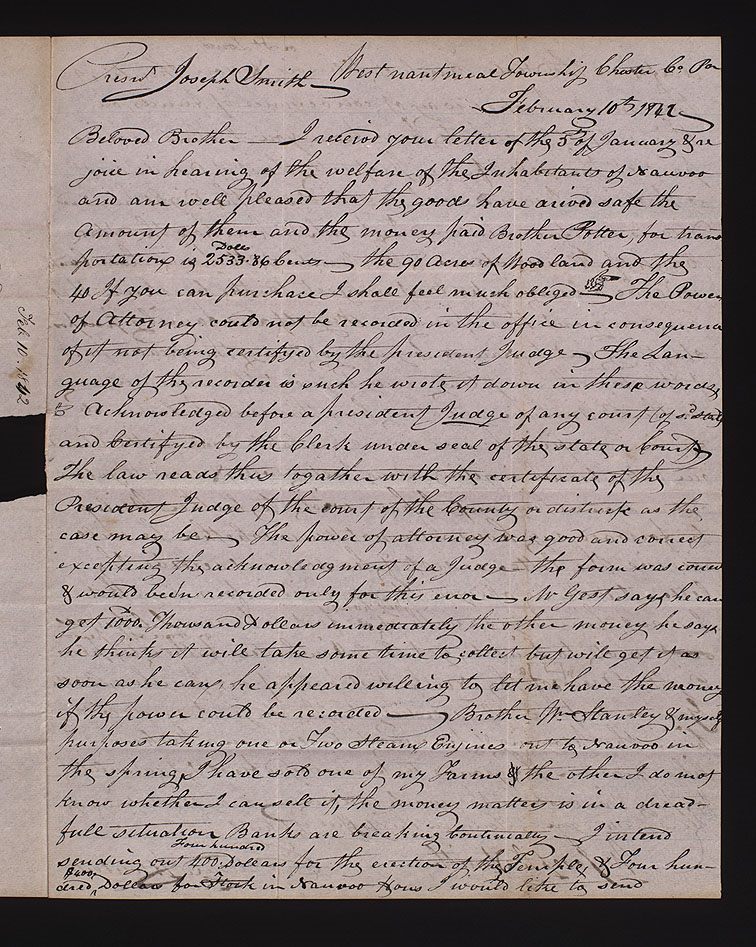 Presdt Joseph Smith — West nantmeal Township Chester Co. Pa
February 10th 1842
Beloved Brother — I receivd your letter of the 5th of January & re
joice in hearing of the welfare of the Inhabitants of Nauvoo
and am well pleased that the goods have arived safe the
Amount of them and the money paid Brother Potter, for trans
portation is 2533.86 Cents — the 90 Acres of Wood land and the
Dolls
40 If you can purchase I shall feel much obliged — The Power
of Attorney could not be recorded in the office in consequence
of it not being certifyed by the president Judge — The Lan-
guage of the recorder is such he wrote it down in these words,
Acknowledged before a president Judge of any court (of sd. state
and Certifyed by the Clerk under seal of the state or Court,
The law reads thus togather with the certificate of the
President Judge of the court of the County or districk as the
case may be — The power of attorney was good and correct
excepting the acknowledgment of a Judge — the form was correct
& would been recorded only for this error — Mr Gest says he can
get 1000. Thousand Dollars immediately the other money he says
he thinks it will take some time to collect but will get it as
soon as he can, he appeared willeing to let me have the money
if the power could be recorded — Brother Wm Stanley & myself
purposes taking one or Two Steam Engines out to Nauvoo in
the spring, I have sold one of my Farms & the other I do not
know whether I can sell it, the money matters is in a dread-
full situation Banks are breaking Continually — I intend
sending out 400. Dollars for the erection of the Temple, & Four hun-
Four hundred
dred, Dollars for Stock in Nauvoo House I would like to send
$400
Feb. 10. 1842